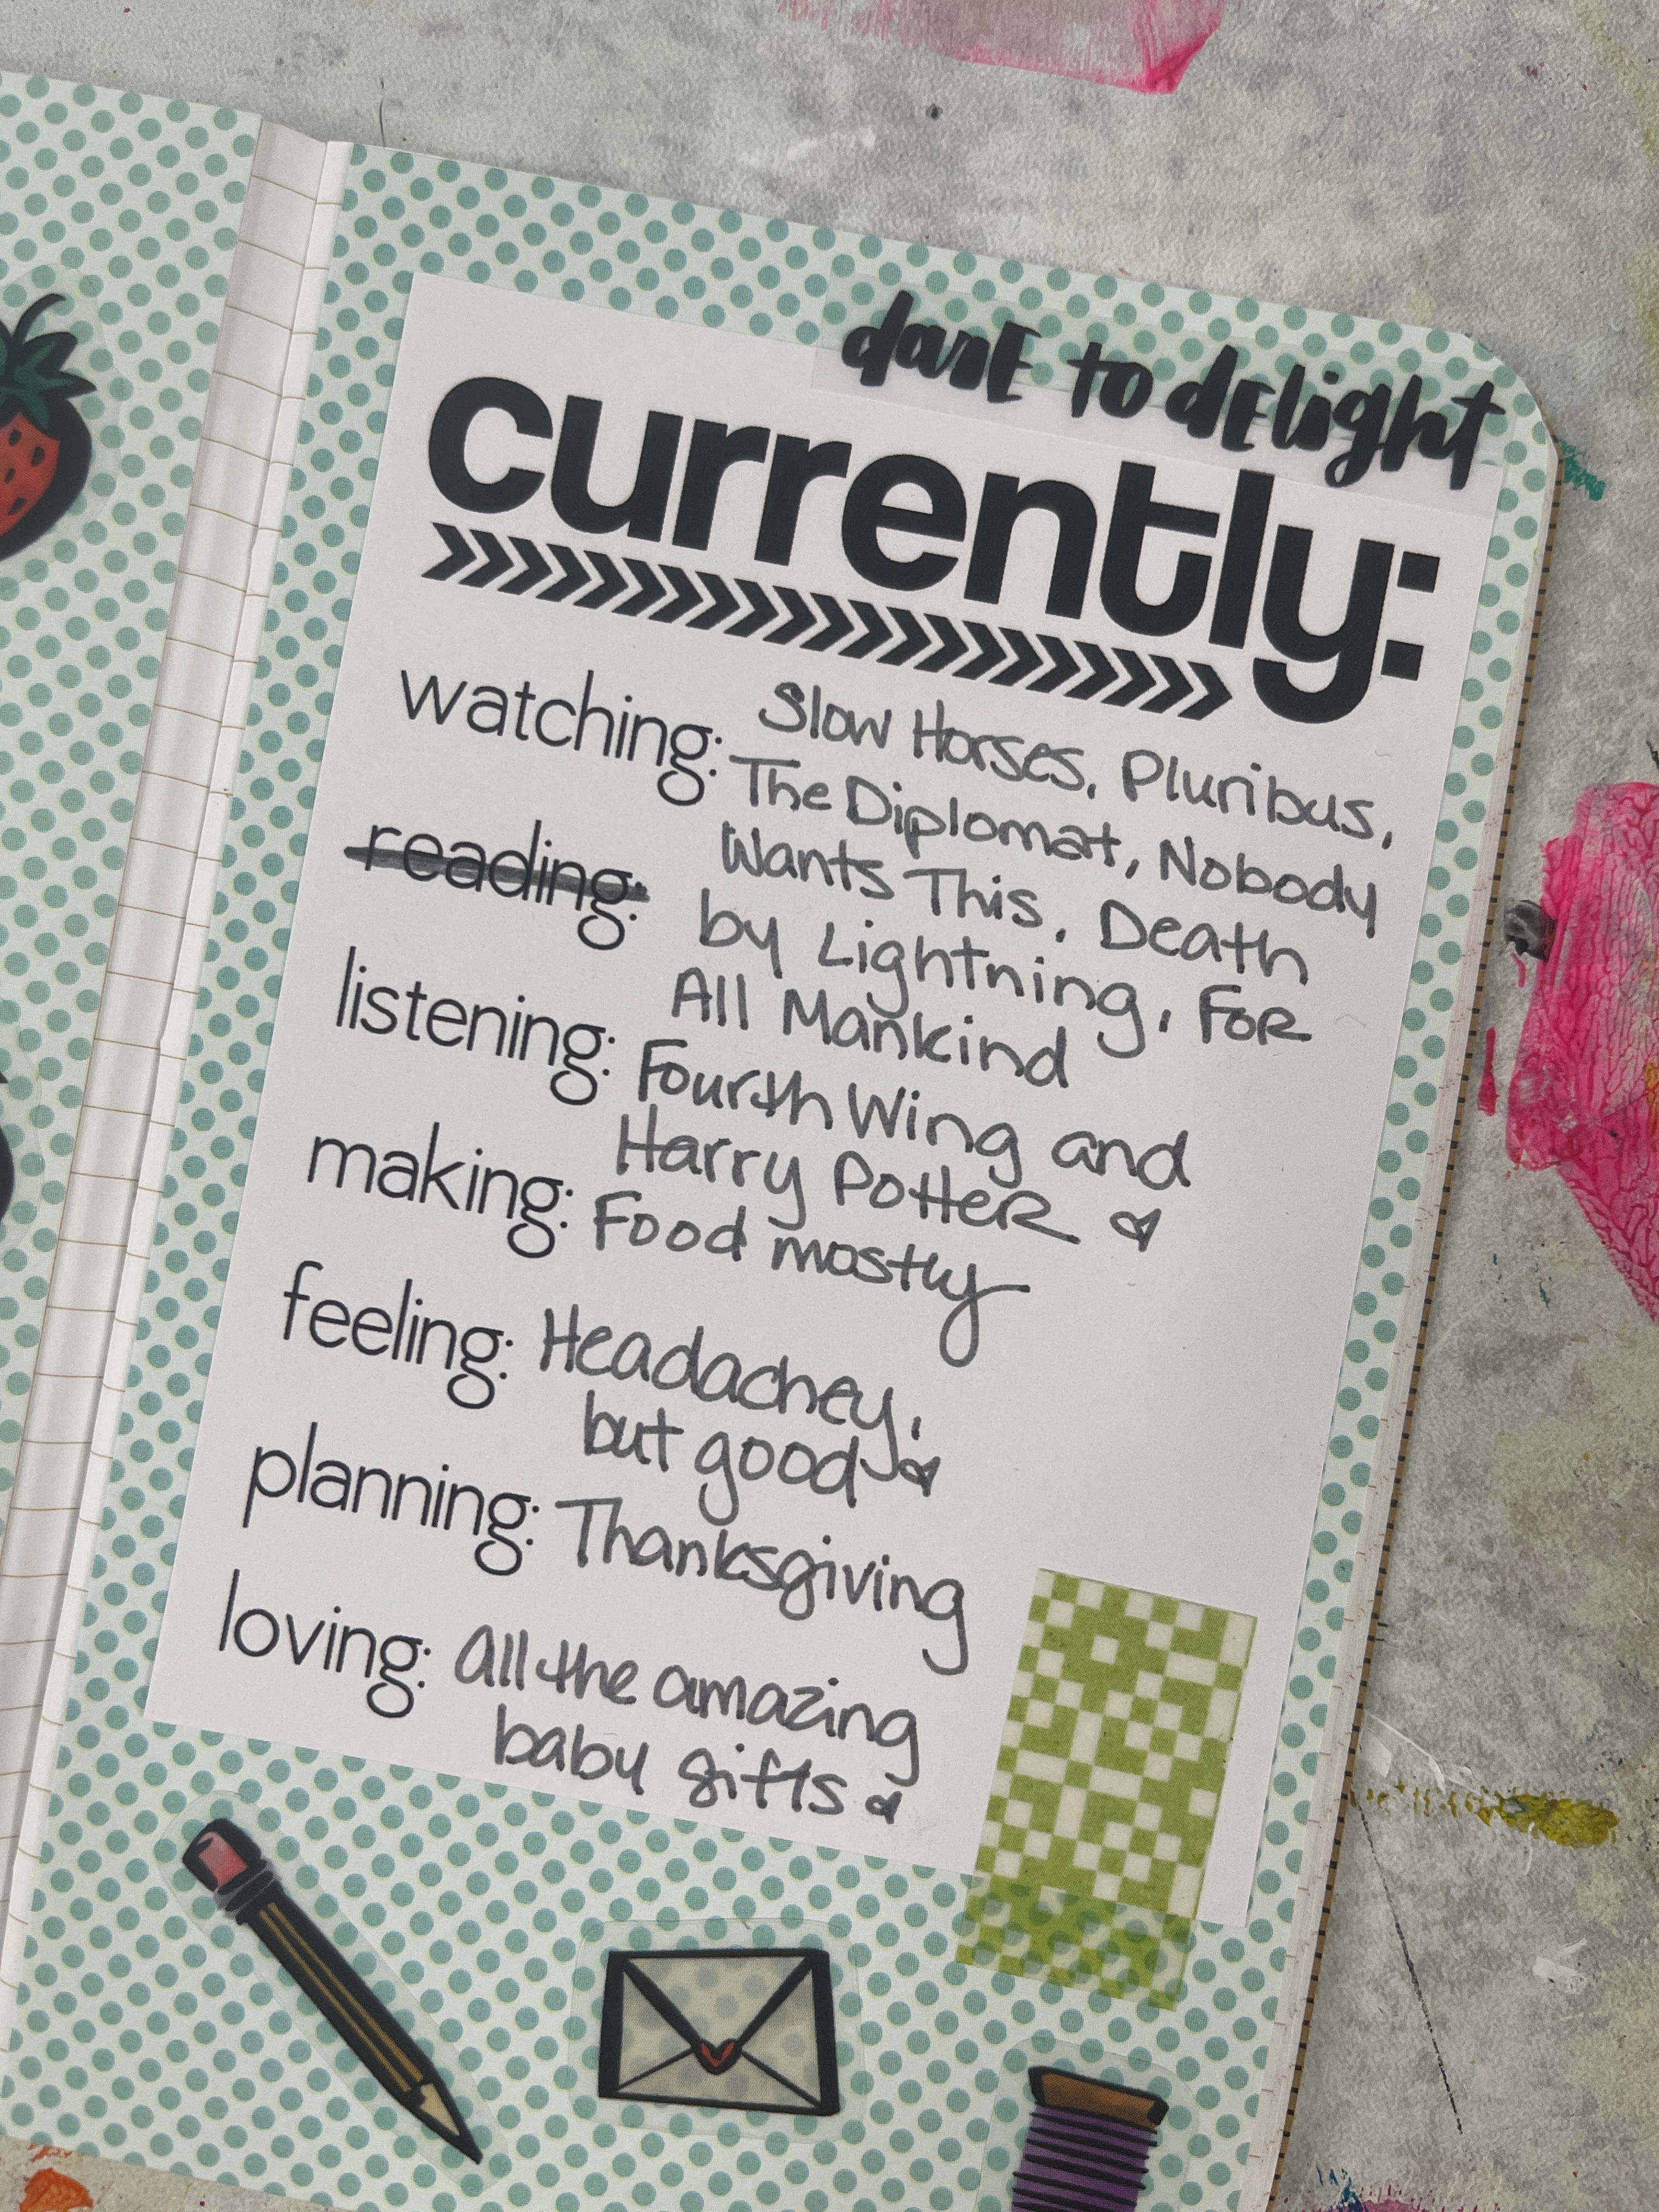 darE to dElight
currently:
watching: Slow Horses, Pluribus,
The Diplomat, Nobody
Wants This, Death
by Lightning, FOR
All Mankind
reading:
listening: Fourth Wing and
Harry Potter
making: Food mostly
feeling: Headachey,
but good
planning: Thanksgiving
loving: All the amazing
baby gifts